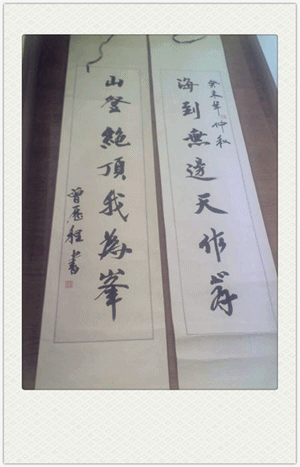 癸未年仲秋
海到無邊天作岸
山登絶頂我為峯
曾 程書